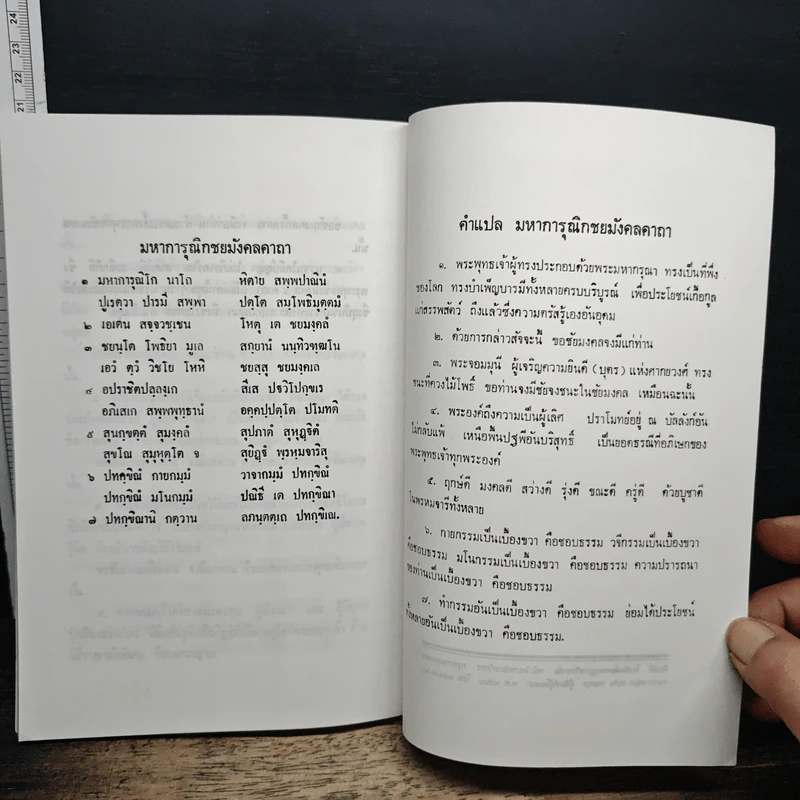 มหาการุณิกชยมังคลคาถา
๑ มหาการุณิโก นาโถ หิตาย สพฺพปาณินํ
ปูเรตฺวา ปารมี สพฺพา ปตฺโต สมฺโพธิมุตฺตมํ
๒ เอเตน สจฺจวชฺเชน โหตุ เต ชยมงฺคลํ
๓ ชยนฺโต โพธิยา มูเล สกฺยานํ นนฺทิวฑฺฒโน
เอวํ ตฺวํ วิชโย โหหิ ชยสฺสุ ชยมงฺคเล
๔ อปราชิตปลฺลงฺเก สีเส ปฐวิโปกฺขเร
อภิเสเก สพฺพพุทฺธานํ อคฺคปฺปตฺโต ปโมทติ
๕ สุนกฺขตฺตํ สุมงฺคลํ สุปภาตํ สุหุฏฺฐิตํ
สุขโณ สุมุหุตฺโต จ สุยิฏฺฐํ พฺรหฺมจาริสุ
๖ ปทกฺขิณํ กายกมฺมํ วาจากมฺมํ ปทกฺขิณํ
ปทกฺขิณํ มโนกมฺมํ ปณิธี เต ปทกฺขิณา
๗ ปทกฺขิณานิ กตฺวาน ลภนฺตตฺเถ ปทกฺขิเณ.
คำแปล มหาการุณิกชยมังคลคาถา
๑. พระพุทธเจ้าผู้ทรงประกอบด้วยพระมหากรุณา ทรงเป็นที่พึ่ง
ของโลก ทรงบำเพ็ญบารมีทั้งหลายครบบริบูรณ์ เพื่อประโยชน์เกื้อกูล
แก่สรรพสัตว์ ถึงแล้วซึ่งความตรัสรู้เองอันอุดม
๒. ด้วยการกล่าวสัจจะนี้ ขอชัยมงคลจงมีแก่ท่าน
๓. พระจอมมุนี ผู้เจริญความยินดี (บุตร) แห่งศากยวงศ์ ทรง
ชนะที่ควงไม้โพธิ์ ขอท่านจงมีชัยจงชนะในชัยมงคล เหมือนฉะนั้น
๔. พระองค์ถึงความเป็นผู้เลิศ ปราโมทย์อยู่ ณ บัลลังก์อัน
ไม่กลับแพ้ เหนือพื้นปฐพีอันบริสุทธิ์ เป็นยอดธรณีที่อภิเษกของ
พระพุทธเจ้าทุกพระองค์
๕. ฤกษ์ดี มงคลดี สว่างดี รุ่งดี ขณะดี ครู่ดี ด้วยบูชาดี
ในพรหมจารีทั้งหลาย
๖. กายกรรมเป็นเบื้องขวา คือชอบธรรม วจีกรรมเป็นเบื้องขวา
คือชอบธรรม มโนกรรมเป็นเบื้องขวา คือชอบธรรม ความปรารถนา
ของท่านเป็นเบื้องขวา คือชอบธรรม
๗. ทำกรรมอันเป็นเบื้องขวา คือชอบธรรม ย่อมได้ประโยชน์
ทั้งหลายอันเป็นเบื้องขวา คือชอบธรรม.
24
23
22
21